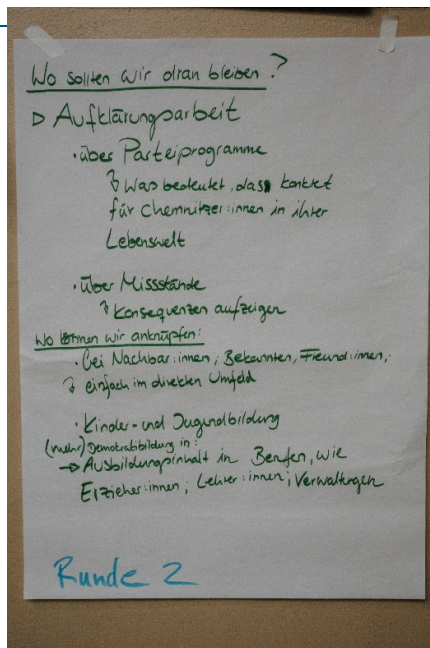 Wo sollten wir dran bleiben?
▷ Aufklärungsarbeit
· über Parteiprogramme
↳ Was bedeutet, das konkret
für Chemnitzer:innen in ihrer
Lebenswelt
· über Missstände
↳ Konsequenzen aufzeigen
Wo können wir anknüpfen:
· bei Nachbar:innen, Bekannten, Freund:innen,
↳ einfach im direkten Umfeld
· Kinder- und Jugendbildung
(mehr) Demokratiebildung in:
→ Ausbildungsinhalt in Berufen, wie
Erzieher:innen, Lehrer:innen, Verwaltungen
Runde 2